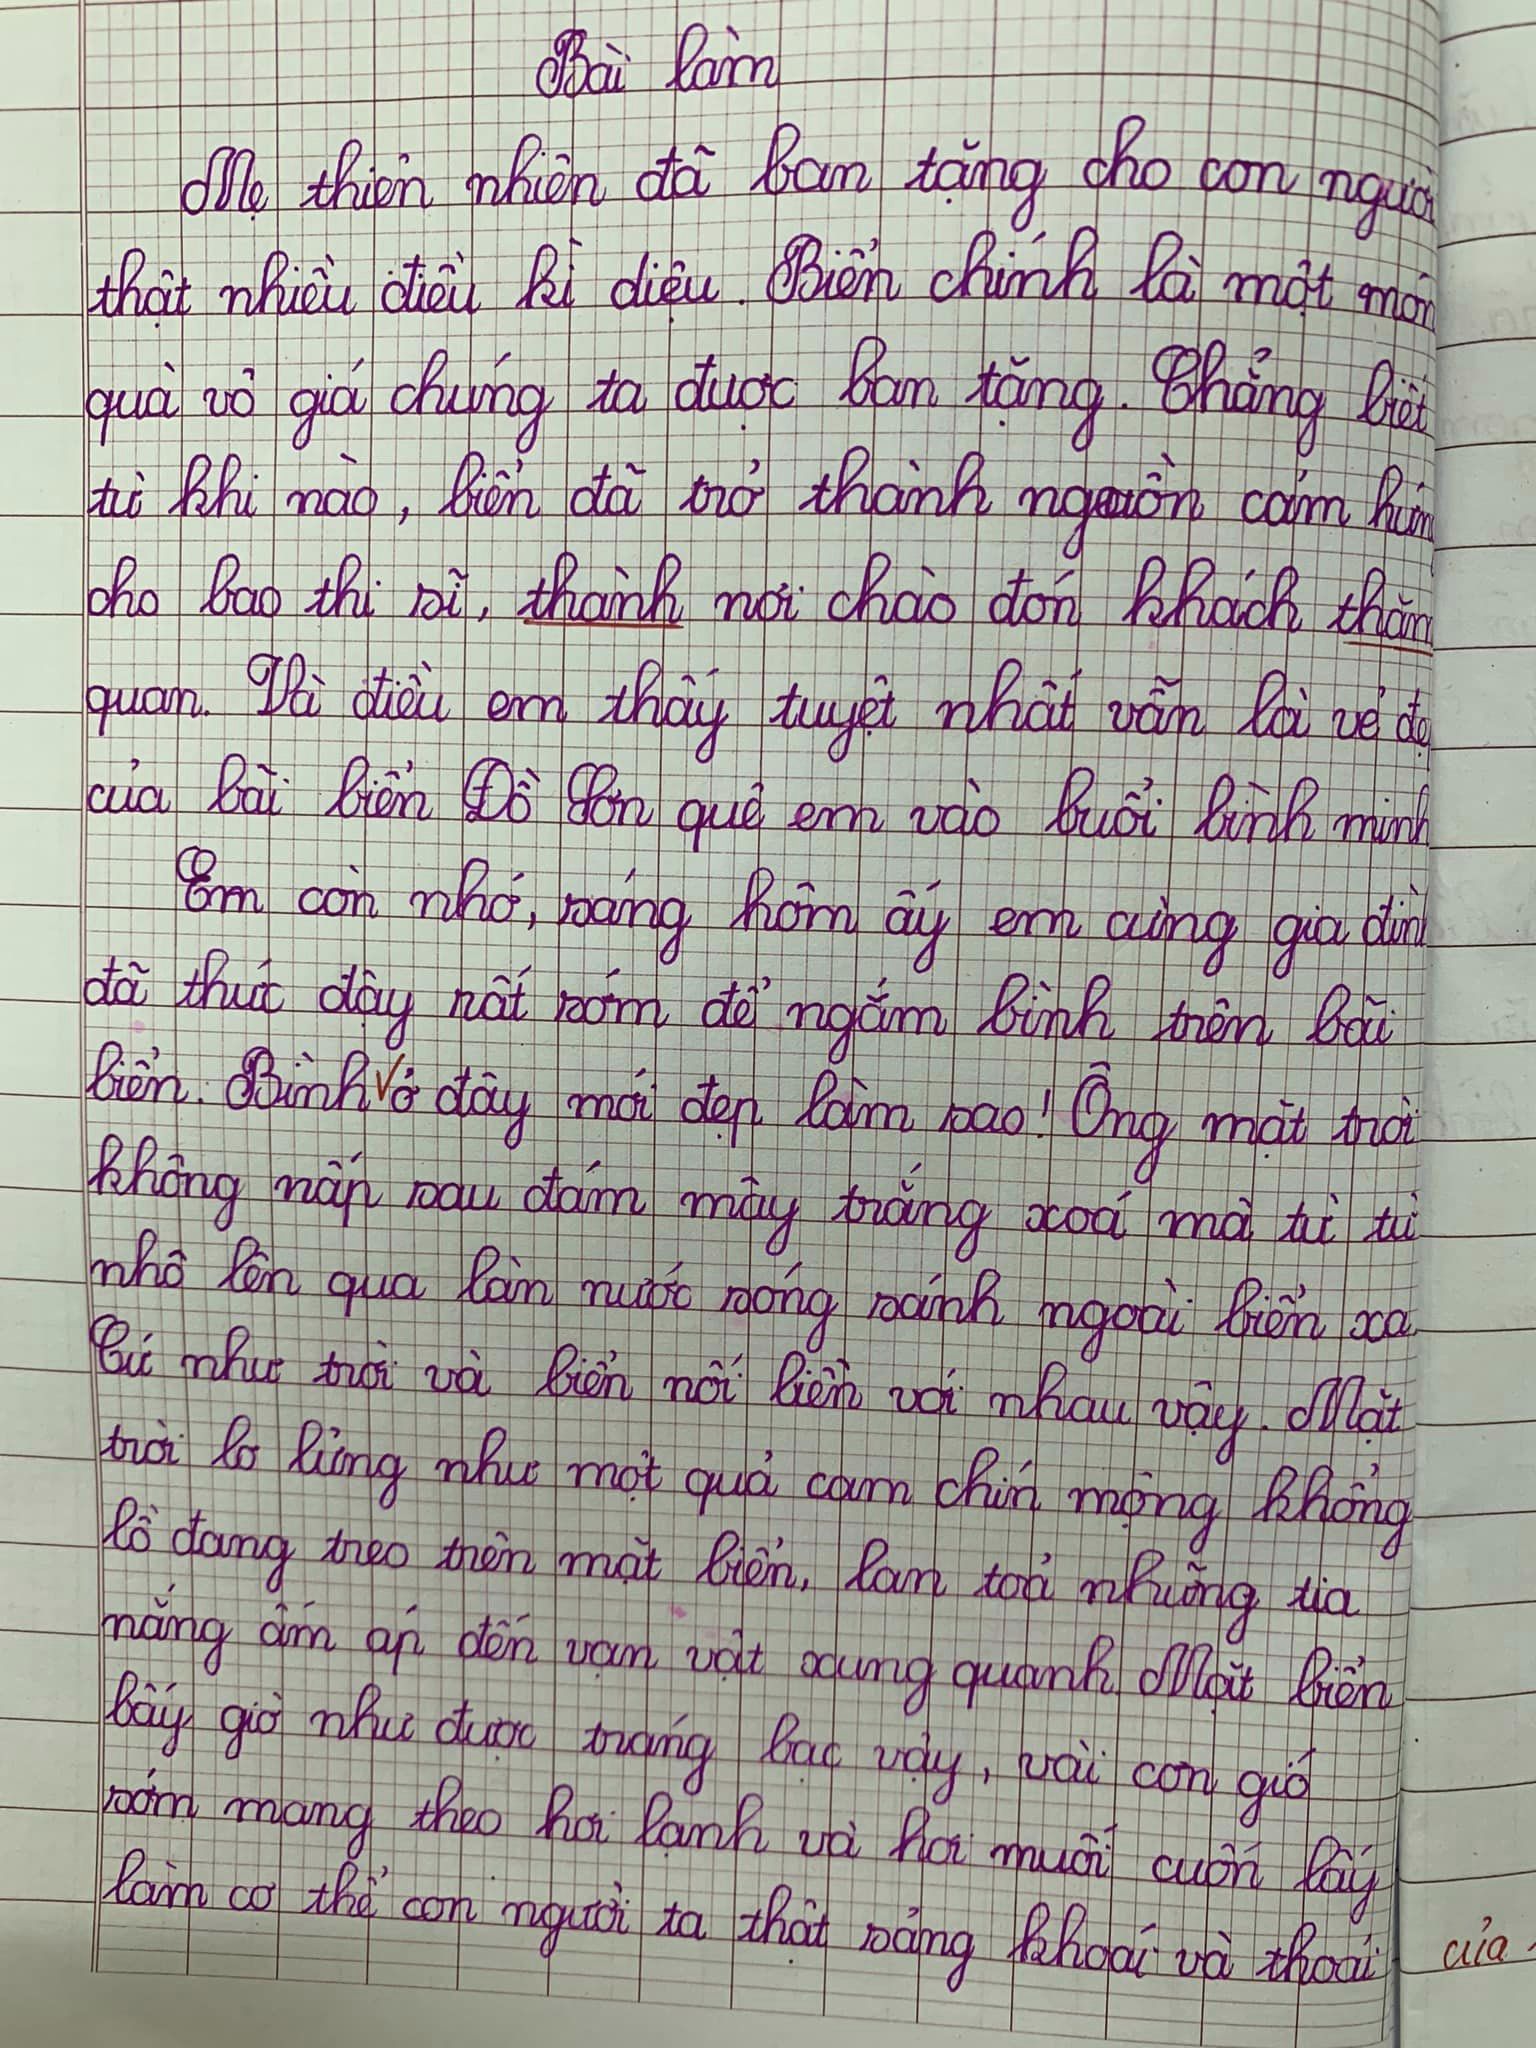 Bài làm
Mẹ thiên nhiên đã ban tặng cho con người
thật nhiều điều kì diệu. Biển chính là một món
quà vô giá chúng ta được ban tặng. Chẳng biết
từ khi nào, biển đã trở thành nguồn cảm hứng
cho bao thi sĩ, thành nơi chào đón khách thăm
quan. Và điều em thấy tuyệt nhất vẫn là vẻ đẹ
của bãi biển Đồ Sơn quê em vào buổi bình minh
Em còn nhớ, sáng hôm ấy em cùng gia đình
đã thức dậy rất sớm để ngắm bình trên bãi
biển. Bình ở đây mới đẹp làm sao! Ông mặt trời
không nấp sau đám mây trắng xoá mà từ từ
nhô lên qua làn nước sóng sánh ngoài biển xa.
Cứ như trời và biển nối liền với nhau vậy. Mặt
trời lơ lửng như một quả cam chín mọng khổng
lồ đang treo trên mặt biển, lan toả những tia
nắng ấm áp đến vạn vật xung quanh. Mặt biển
bấy giờ như được tráng bạc vậy, vài cơn gió
sớm mang theo hơi lạnh và hơi muối cuốn lấy
làm cơ thể con người ta thật sảng khoái và thoải
của